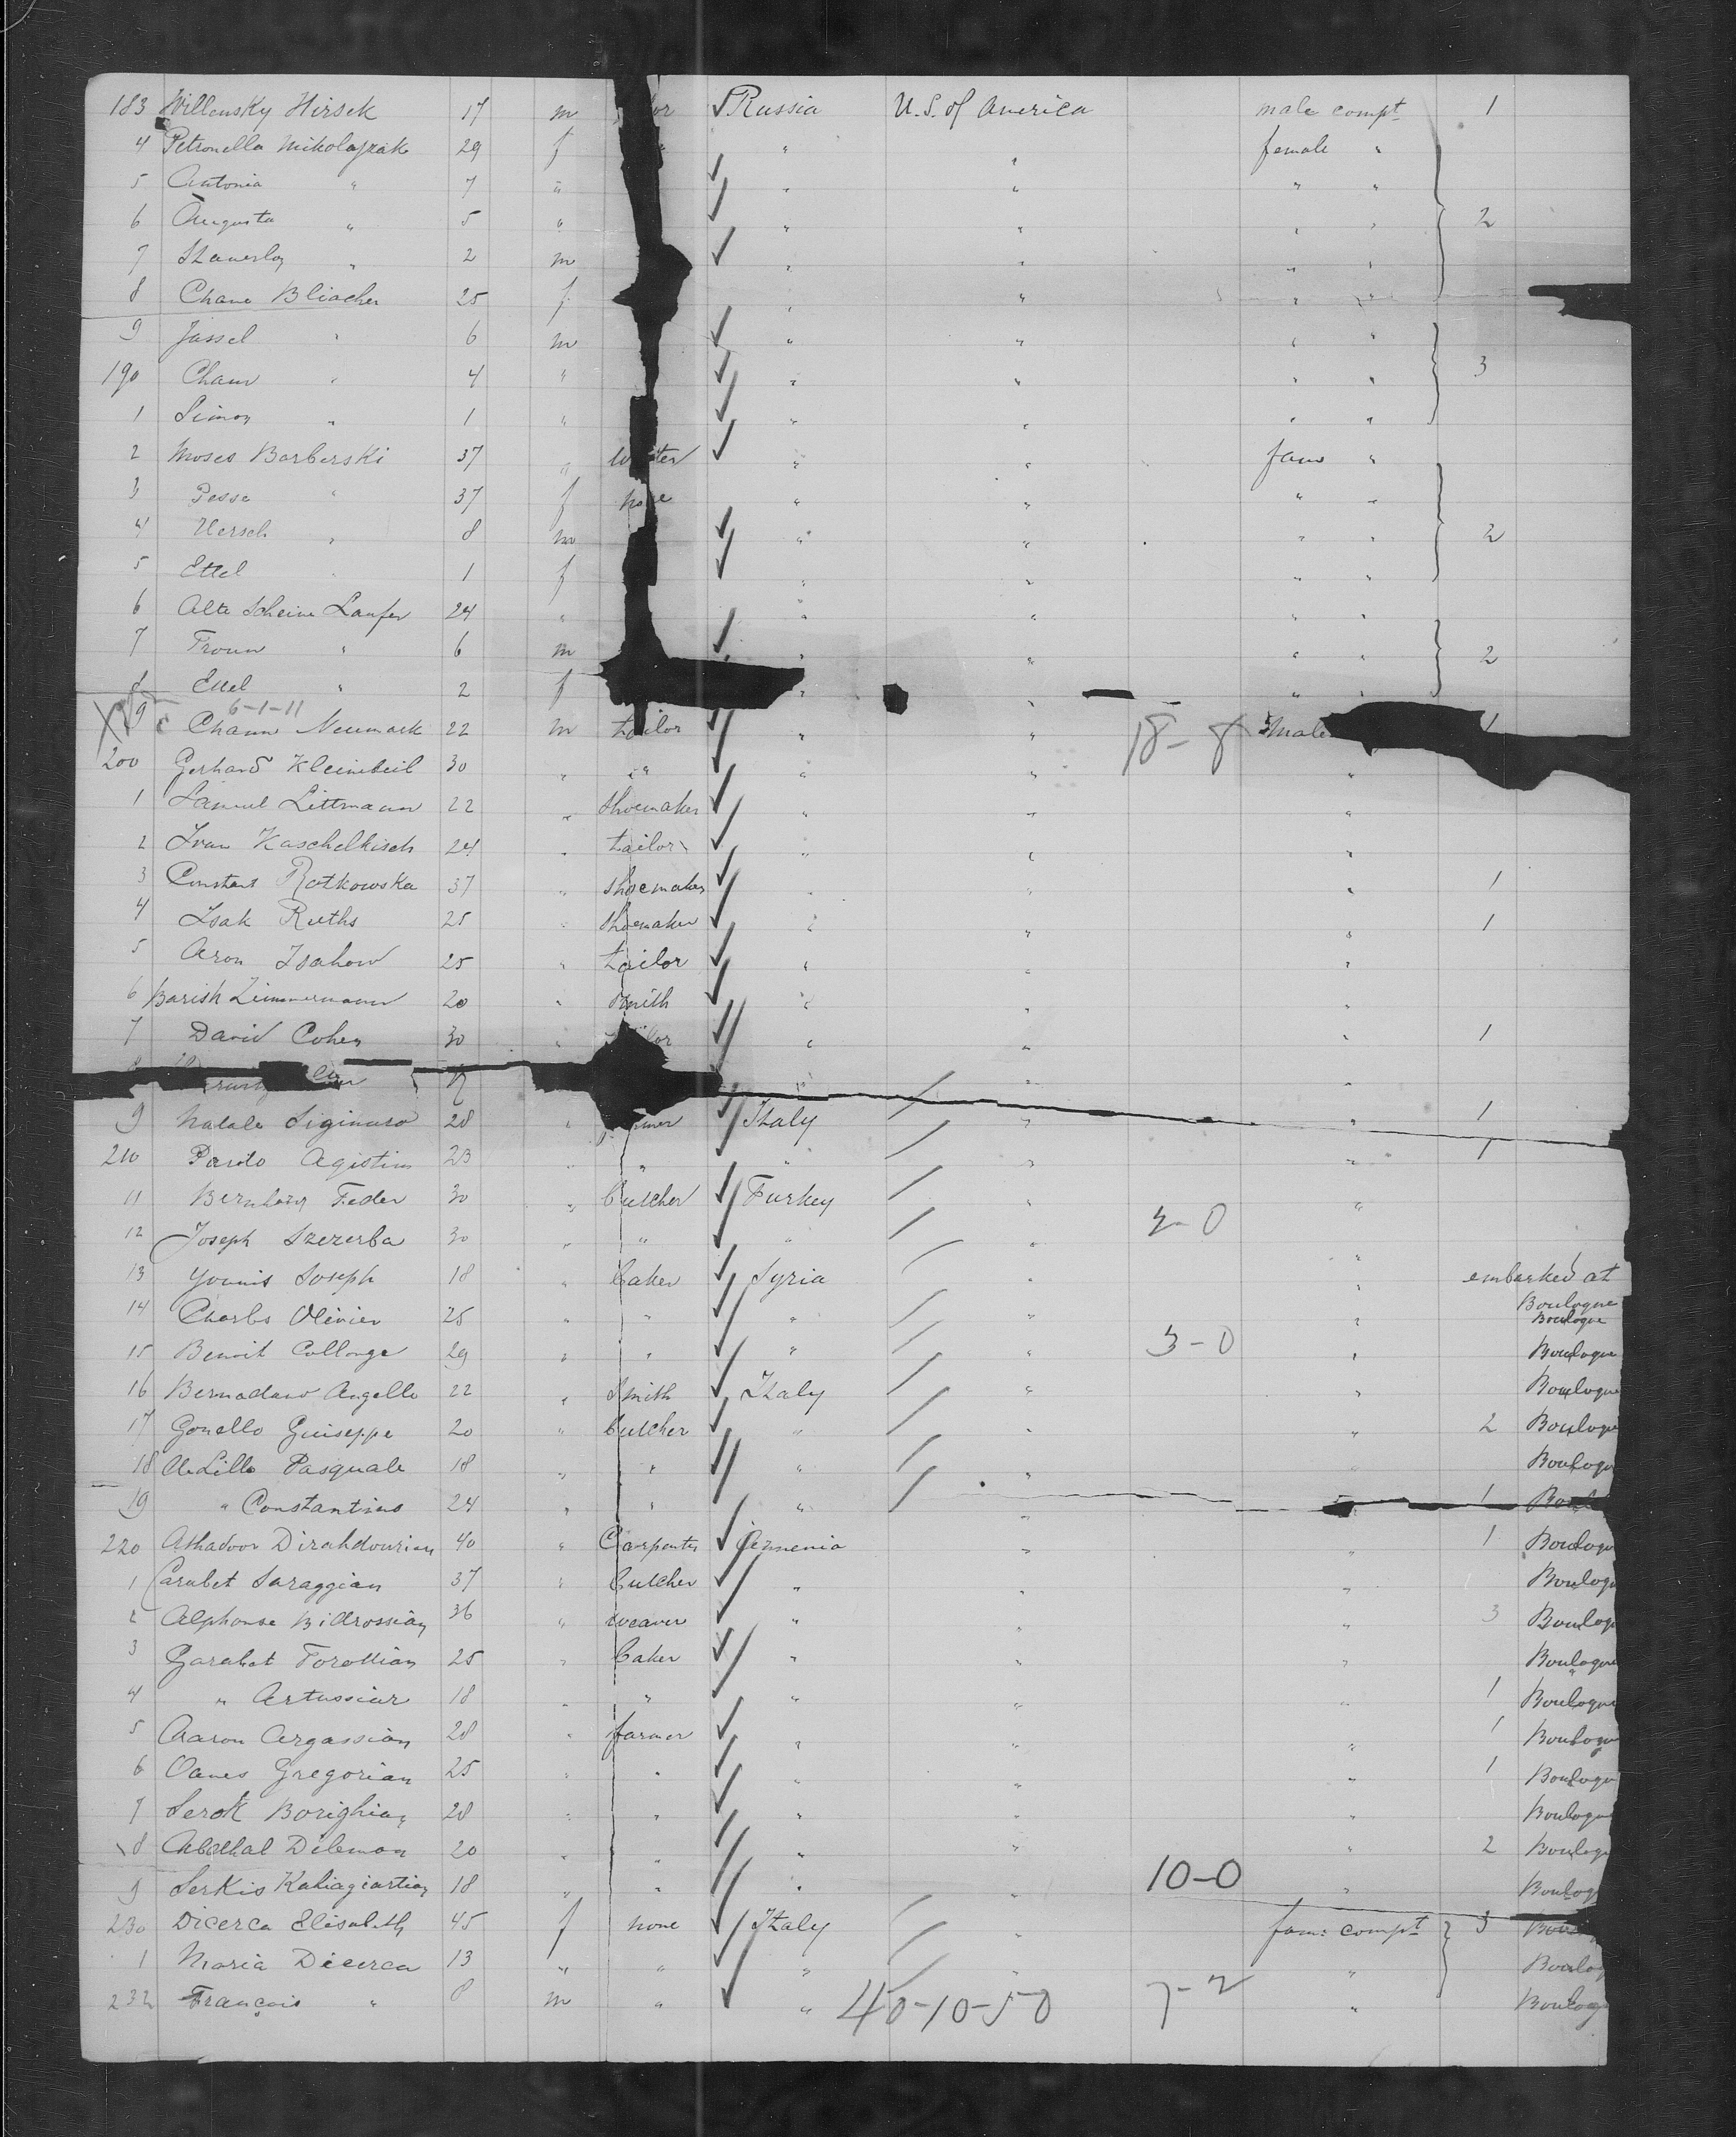 183 Willensky Hirsek 17 m ✓ Russia U.S. of America male compt 1
4 Petronella Mikolajzak 29 f " " female "
5 Antonia " 7 " ✓ " " " "
6 Augusta " 5 " ✓ " " " " 2
7 " 2 m ✓ " " " "
8 Chane Bliacher 25 f " " " "
9 Jassel " 6 m ✓ " " " "
190 Cham " 4 " ✓ " " " " 3
1 Simon " 1 " ✓ " " " "
2 Moses Barberski 37 " ✓ " " fam "
3 Pesse " 37 f none " " " "
4 Hersch " 8 m ✓ " " " " 2
5 Ettel " 1 f ✓ " " " "
6 Alte Scheine Laufer 24 " " " " "
7 " 6 m ✓ " " " " 2
8 Ettel " 2 f " " " "
6-1-11
9 Chaim Neumark 22 m tailor ✓ " " 18-8 Male 1
200 Gerhard Kleinbeil 30 " " ✓ " " "
1 Samuel Littmann 22 " shoemaker ✓ " " "
2 Ivan Kaschelkisch 24 " tailor ✓ " " "
3 Constant Rotkowska 37 " shoemaker ✓ " " " 1
4 Isak Ruths 25 " shoemaker ✓ " " " 1
5 Aron Isahow 25 " tailor ✓ " " "
6 Barish Zimmermann 20 " smith ✓ " " "
7 David Cohen 30 " ✓ " " " 1
9 Natale Siginuro 28 " ✓ Italy " " 1
210 Pardo Agistino 23 " " " " " 1
11 Bernhard Feder 30 " butcher ✓ Turkey " "
12 Joseph Szezerba 30 " " ✓ " " 2-0 "
13 Younis Joseph 18 " baker ✓ Syria " " embarked at
Boulogne
14 Charles Olivier 25 " " ✓ " " " Boulogne
15 Benoit Collonge 29 " " ✓ " " 3-0 " Boulogne
16 Bernadavo Angello 22 " smith ✓ Italy " " Boulogne
17 Gonello Guiseppe 20 " butcher ✓ " " " 2 Boulogne
18 deLillo Pasquale 18 " " ✓ " " " Boulogn
19 " Constantino 24 " " " " " 1 Boul
220 Athadoor Dirahdourian 40 " Carpenter ✓ Armenia " " 1 Boulogn
1 Carabet Saraggian 37 " butcher ✓ " " " Boulogn
2 Alphonse Bidrossian 36 " weaver ✓ " " " 3 Boulogn
3 Garabet Torottian 25 " baker ✓ " " " Boulogne
4 " Artussiar 18 " " ✓ " " " 1 Boulogne
5 Aaron Argassian 28 " farmer ✓ " " " 1 Boulogn
6 Oanes Gregorian 25 " " ✓ " " " 1 Boulogn
7 Serok Borighian 28 " " ✓ " " " Boulogne
8 Abdellal Dileman 20 " " ✓ " " " 2 Boulogn
9 Serkis Kahagiartian 18 " " ✓ " " 10-0 " Boulogn
230 Dicerca Elisabeth 45 f none ✓ Italy " fam: compt 3 Boul
1 Maria Dicerca 13 " " ✓ " " " Boulog
232 François " 8 m " ✓ " 40-10-50 7-2 " Boulog